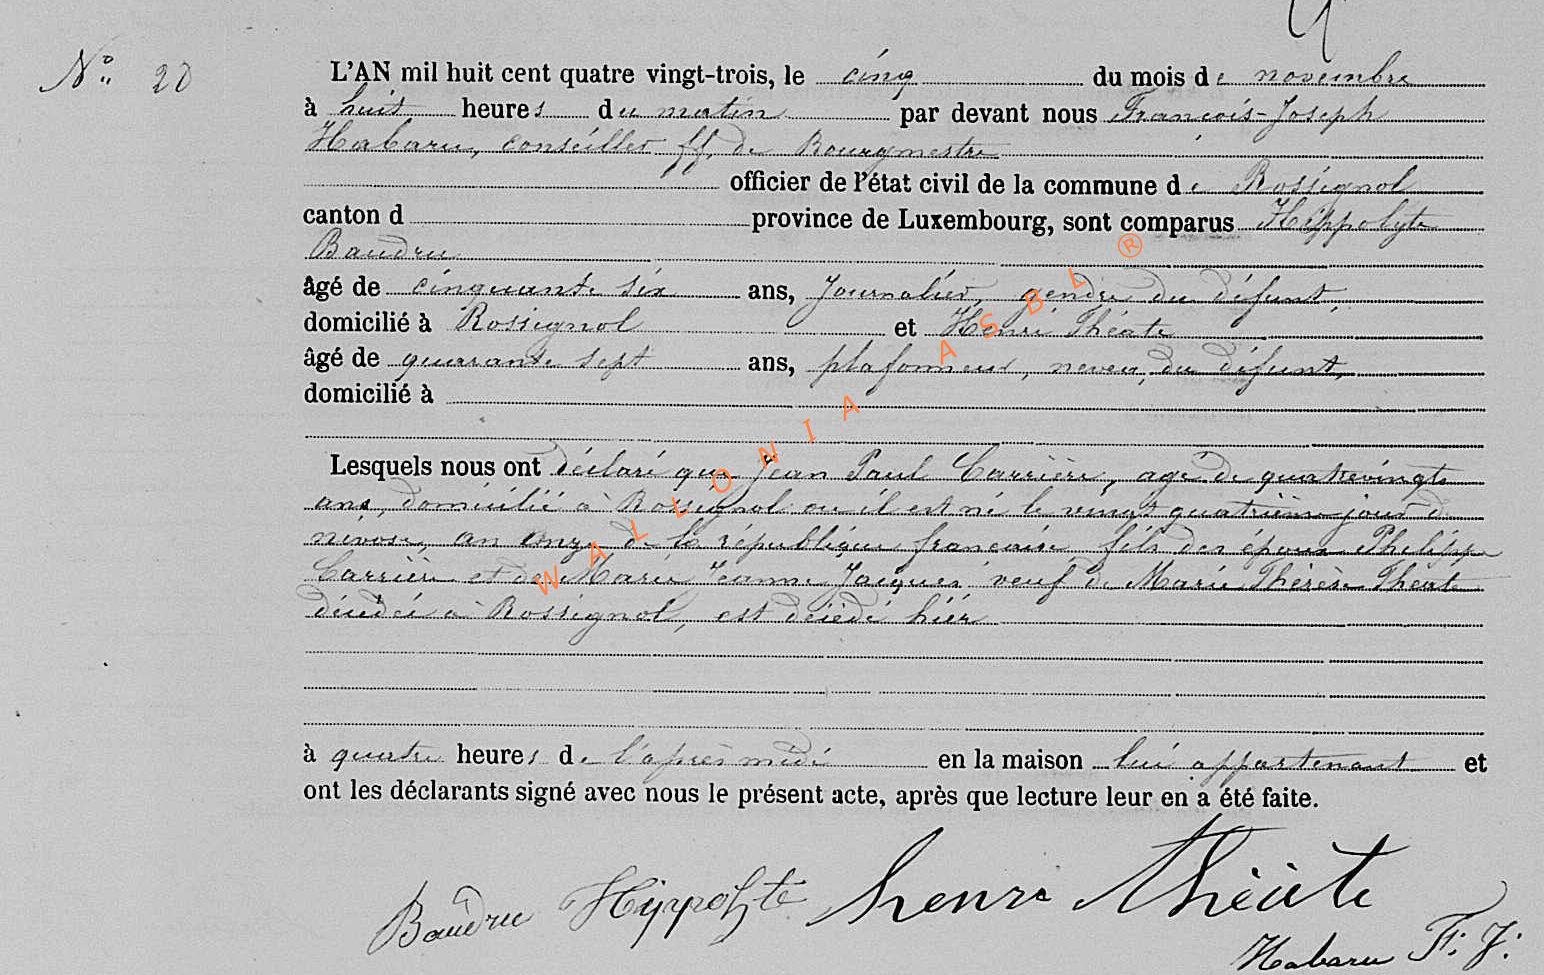 N° 20
L'AN mil huit cent quatre vingt-trois, le cinq du mois de novembre
à huit heures du matin par devant nous François-Joseph
Habaru, conseiller ff. de Bourgmestre
officier de l'état civil de la commune de Rossignol
canton d province de Luxembourg, sont comparus Hippolyte
Baudru
âgé de cinquante six ans, Journalier, gendre du défunt,
domicilié à Rossignol et Henri Théate
âgé de quarante sept ans, plafonneur, neveu du défunt,
domicilié à
Lesquels nous ont déclaré que Jean Paul Carrière, agé de quatrevingts
ans, domicilié à Rossignol ou il est né le vingt quatrième jour de
nivose, an onze de la république française, fils des époux Philippe
Carrière et de Marie Jeanne Jacques veuf de Marie Thérèse Théate
décédée à Rossignol, est décédé hier
à quatre heures de l'après midi en la maison lui appartenant et
ont les déclarants signé avec nous le présent acte, après que lecture leur en a été faite.
Baudru Hippolyte henri théate
Habaru F. J.
WALLONIA ASBL ®